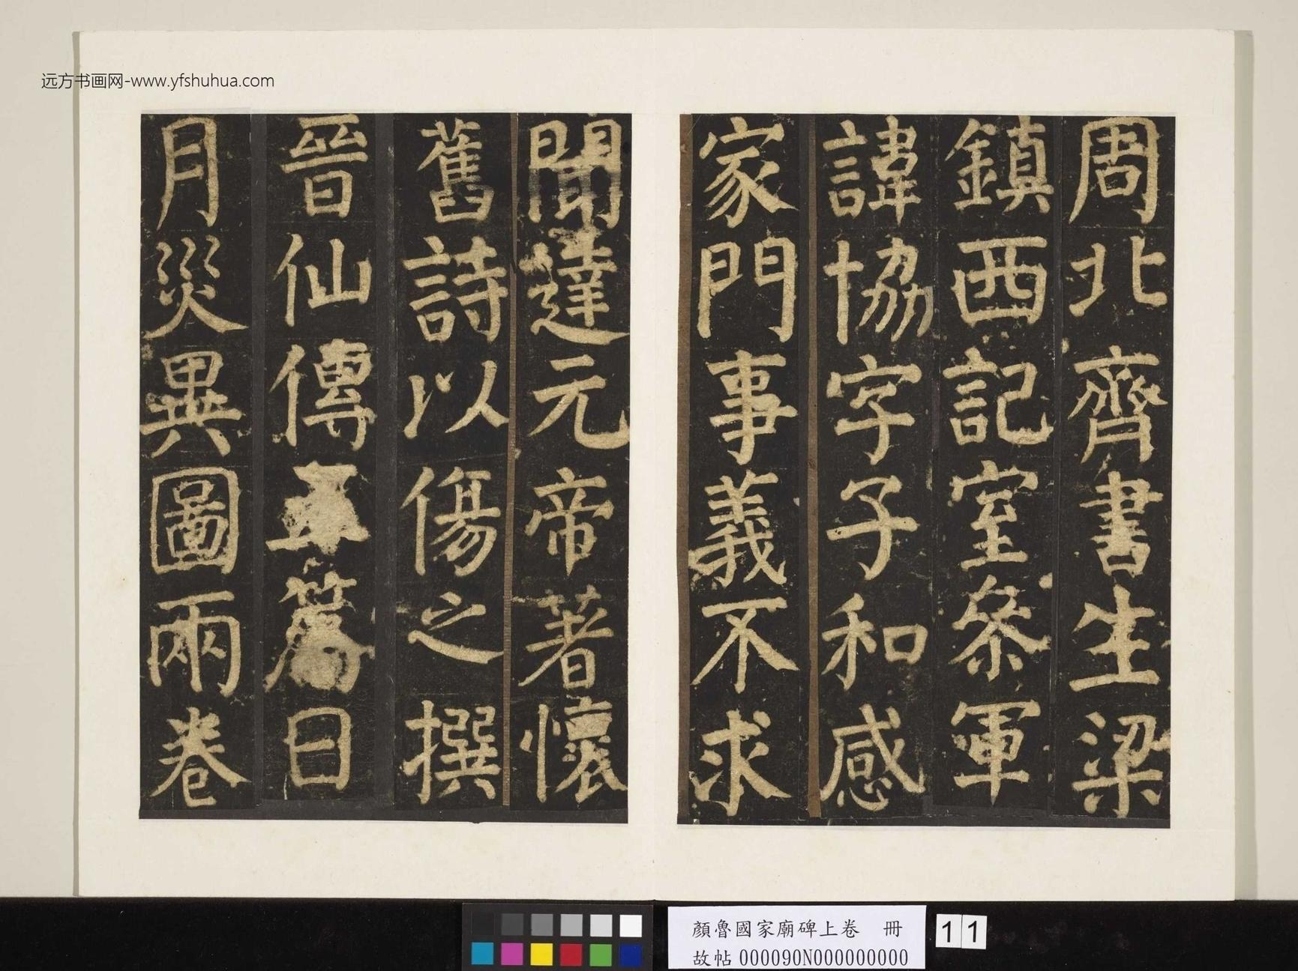 远方书画网-www.yfshuhua.com
周北齊書生梁
鎮西記室叅軍
諱協字子和感
家門事義不求
聞達元帝著懷
舊詩以傷之撰
晉仙傳五篇日
月災異圖兩卷
顏魯國家廟碑上卷　冊
故帖000090N000000000
11